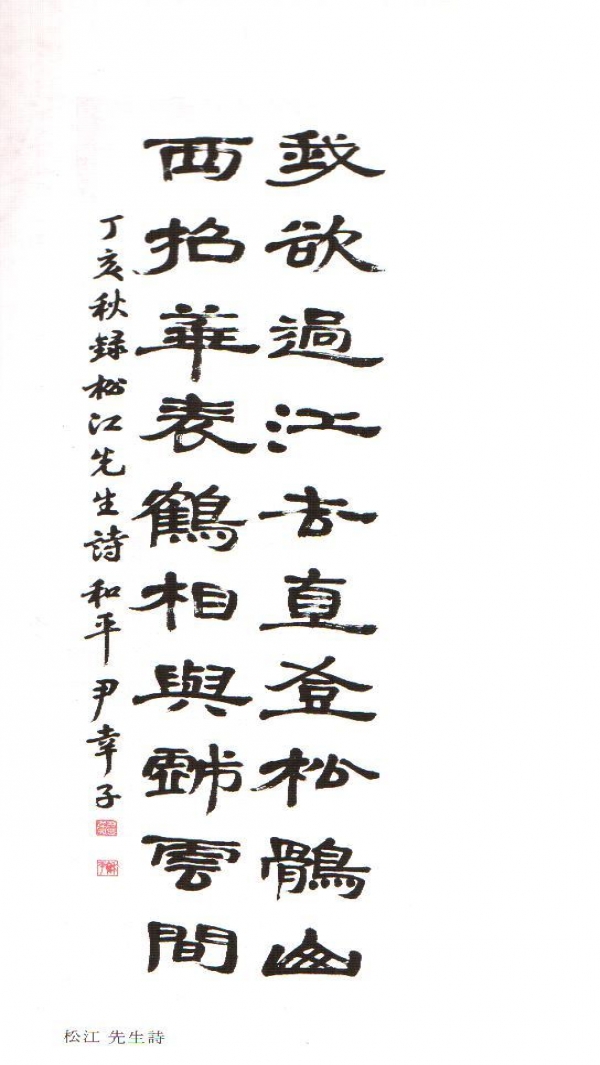 我欲過江去直登松鶻山
西招華表鶴相與戲雲間
丁亥秋録松江先生詩和平尹幸子
松江 先生詩